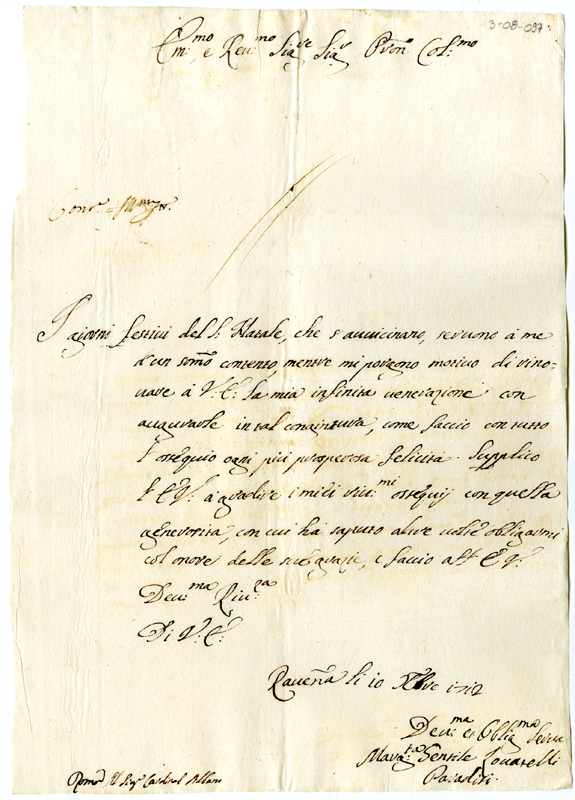 3-08-097
Em:mo e Reu:mo Sig.re Sig.r Pron Col:mo
I giorni festiui del S. Natale, che s'auuicinano, seruono à me
d'un somo contento, mentre mi porgono motiuo di rino=
uare à V. E. la mia infinita uenerazione con
augurarle in tal congiuntura, come faccio con tutto
l'ossequio ogni più prosperosa felicità. Supplico
l'E. V. à gradire i miei riu:mi ossequij con quella
generosità, con cui hà saputo altre uolte obligarmi
col onore delle sue grazie, e faccio all'E. V.
Deu:ma Riu:za
Di V. E.
Rauena li 10 Xbre 1712
Deu:ma et Oblig:ma Serua
Marg:ta Gentile Louatelli
Roma Sig.r Cardinal Albani